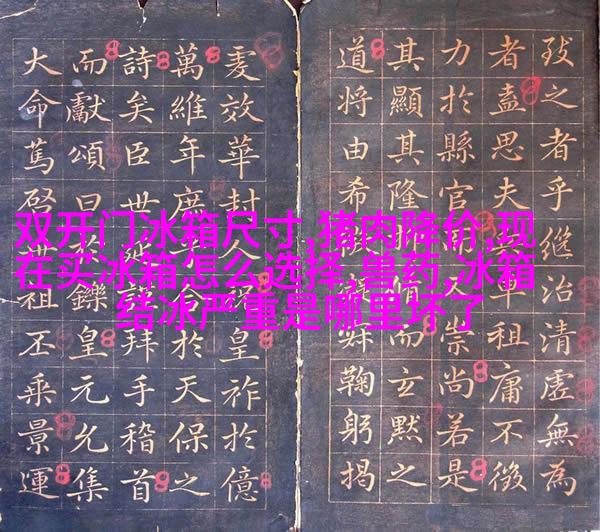 双开门冰箱尺寸,猪肉降价,现
在买冰箱怎么选择,兽药,冰箱
结冰严重是哪里坏了
之者乎繼治清虛無為
者盍思夫租庸不徵
力於縣官天崇尚若是
其顯其隆脩而玄默之
道將由希鞠躬揭
效華封人皇祚於億
萬維年於天保之
詩矣臣世拜手稽首
而獻頌曰鑠皇元允集
大命篤啓世祖丕乘景運